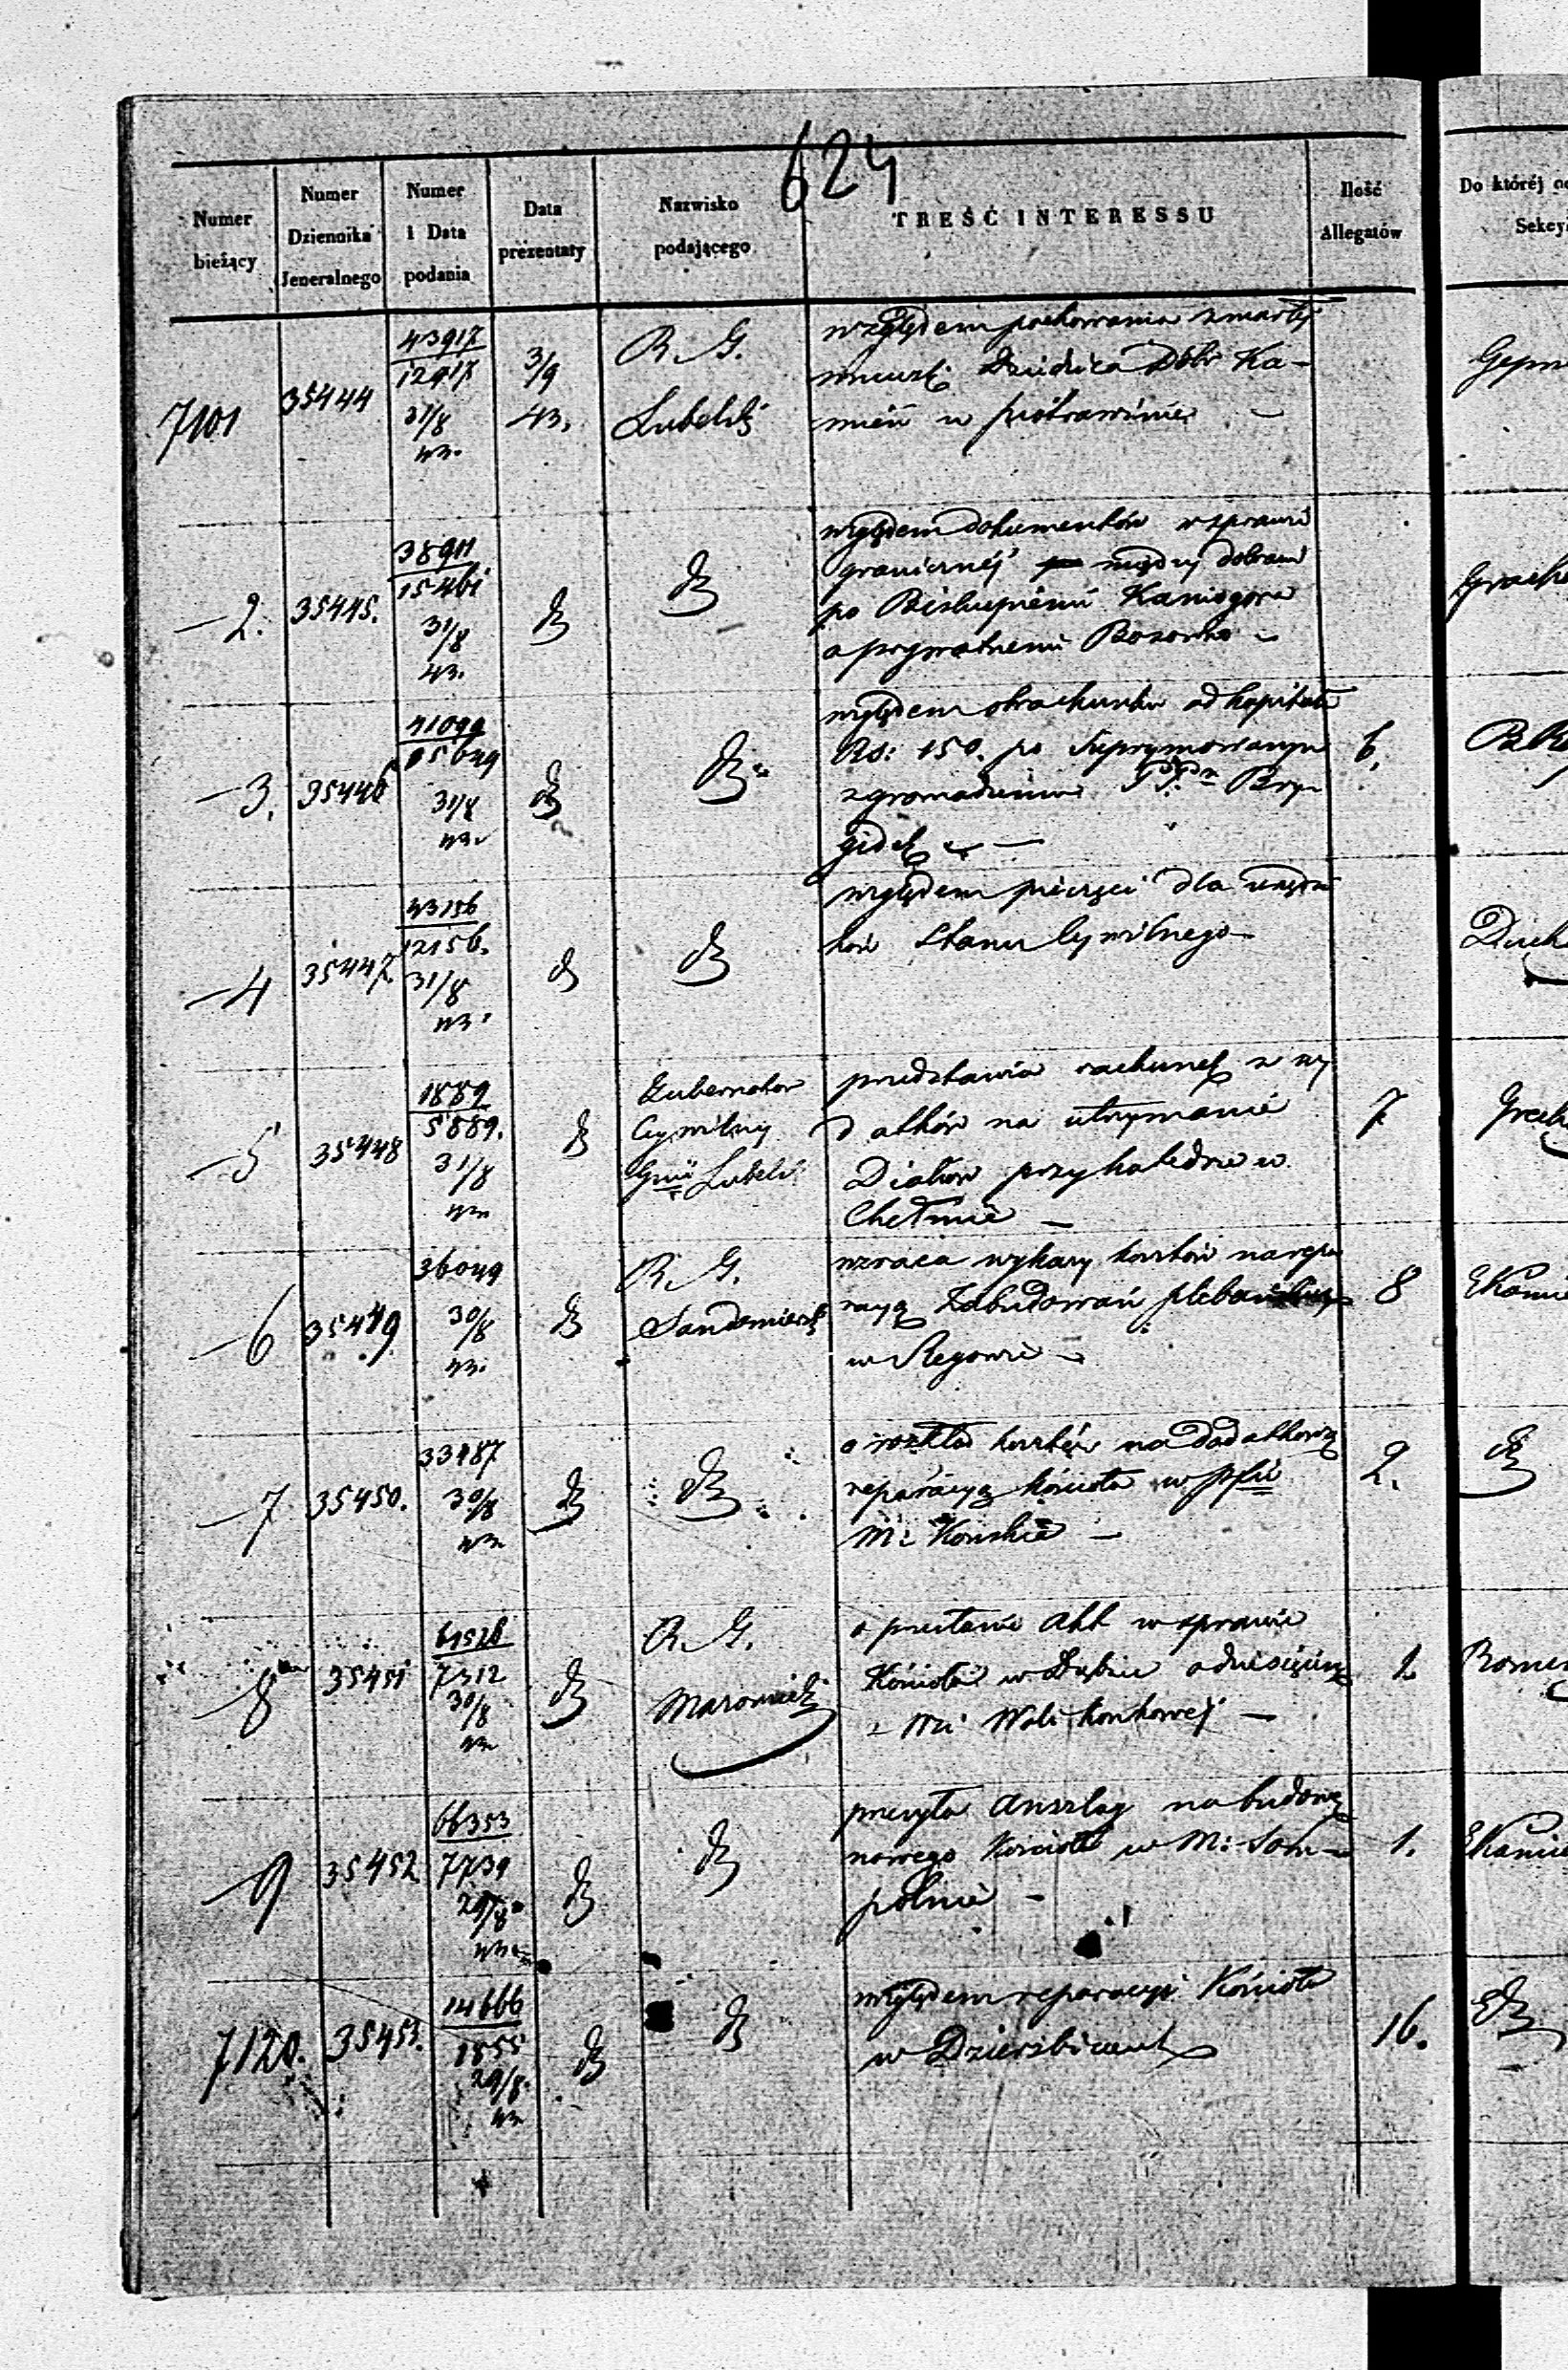 624
Numer bieżący
Numer Dziennika Jeneralnego
Numer i Data podania
Data prezentaty
Nazwisko podającego
TREŚĆ INTERESSU
Ilość Allegatów
Do któréj
Sekcy
7101 35444 43917 12917 31/8 43. 3/9 43. R. G. Lubelski
względem pochowania zmarłej
Dziedzica Dóbr Ka-
mień w Piotrawinie -
-2. 35445. 38911 15461 31/8 43. do do
względem dokumentów w sprawie
granicznéj między dobrami
po Biskupiemi Kaniegóra
a prywatnemi
-3. 35446 41099 15649 31/8 43 do do 6.
względem obrachunku od kapitału
Rs: 150. po Supprymowanym
zgromadzeniu PP. Bry-
gidek -
-4 35447. 43156 12156. 31/8 43. do do
względem pieczęci dla urzędni
ków Stanu Cywilnego -
Duch
-5 35448 1889 5889. 31/8 43 do Gubernator Cywilny Gnii Lubels. 7
przedstawia rachunek z wy
datków na utrzymanie
Diaków przy katedrze w
Chełmie -
-6 35449 36049 30/8 43. do R. G. Sandomierski 8
wzraca wykazy kosztów na repa
racyą Zabudowań pleban
w Regowie -
-7 35450. 33487 30/8 43 do do 2. do
o rozkład kosztów na dodatkową
reparacyą kościoła w pfii
M: Końskie -
-8 35451 61528 7312 30/8 43 do R. G. Mazowiecki 1
o przesłanie Akt w sprawie
Kościoła w Dąbiu o dziesięcinę
z Wsi Woli
-9 35452 66353 7739 29/8 43 do do 1.
przesyła Anszlag na budowę
nowego Kościoła w M: Som-
polnie -
7120. 35453. 14666 1855 29/8 43 do do 16. do
względem reparacyi Kościoła
w Dzierzbicach